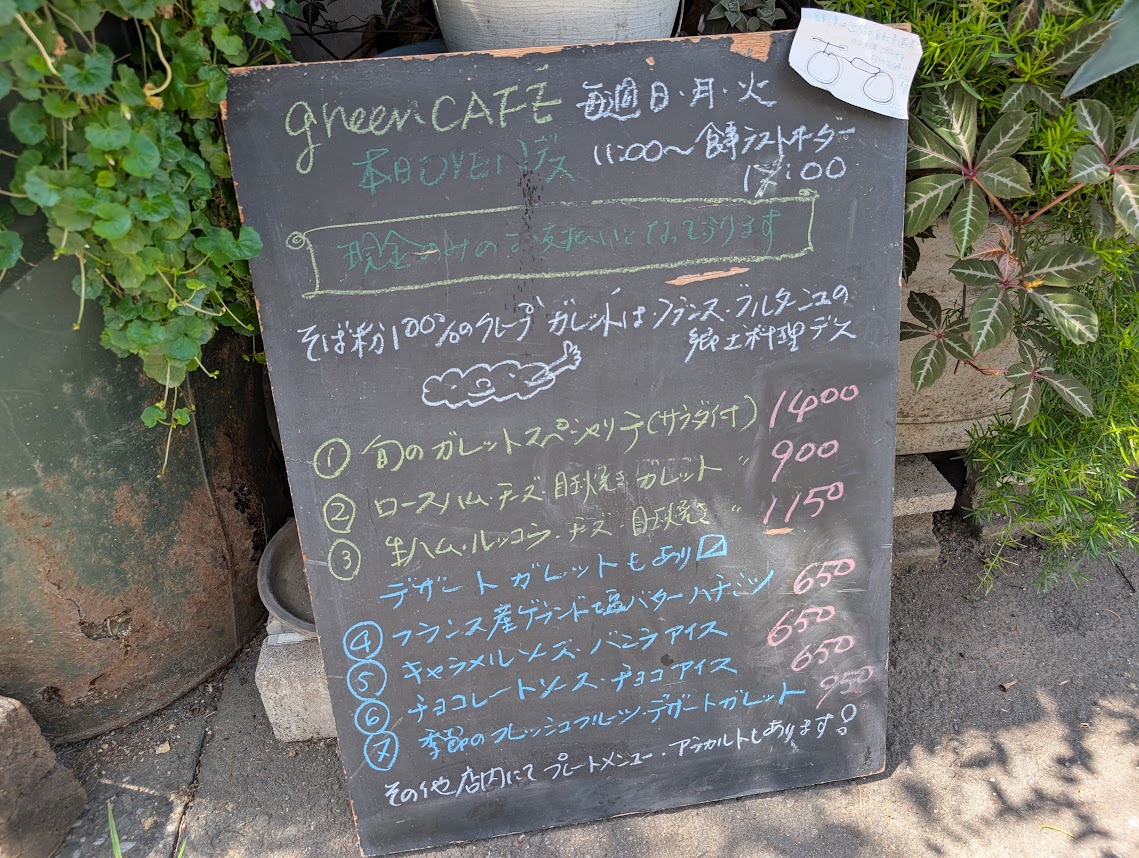 green CAFE 毎週 日・月・火
本日OPENデス 11:00～食事ラストオーダー
17:00
現金のみのお支払いとなっております
そば粉100%のクレープ ガレットは・フランス・ブルターニュの
郷土料理デス
① 旬のガレットスペシャリテ(サラダ付) 1400
② ロースハム・チーズ・目玉焼きガレット 〃 900
③ 生ハム・ルッコラ・チーズ・目玉焼き 〃 1150
デザートガレットもあり
④ フランス産ゲランド塩バターハチミツ 650
⑤ キャラメルソース・バニラアイス 650
⑥ チョコレートソース・チョコアイス 650
⑦ 季節のフレッシュフルーツ・デザートガレット 950
その他店内にてプレートメニュー・アラカルトもあります!